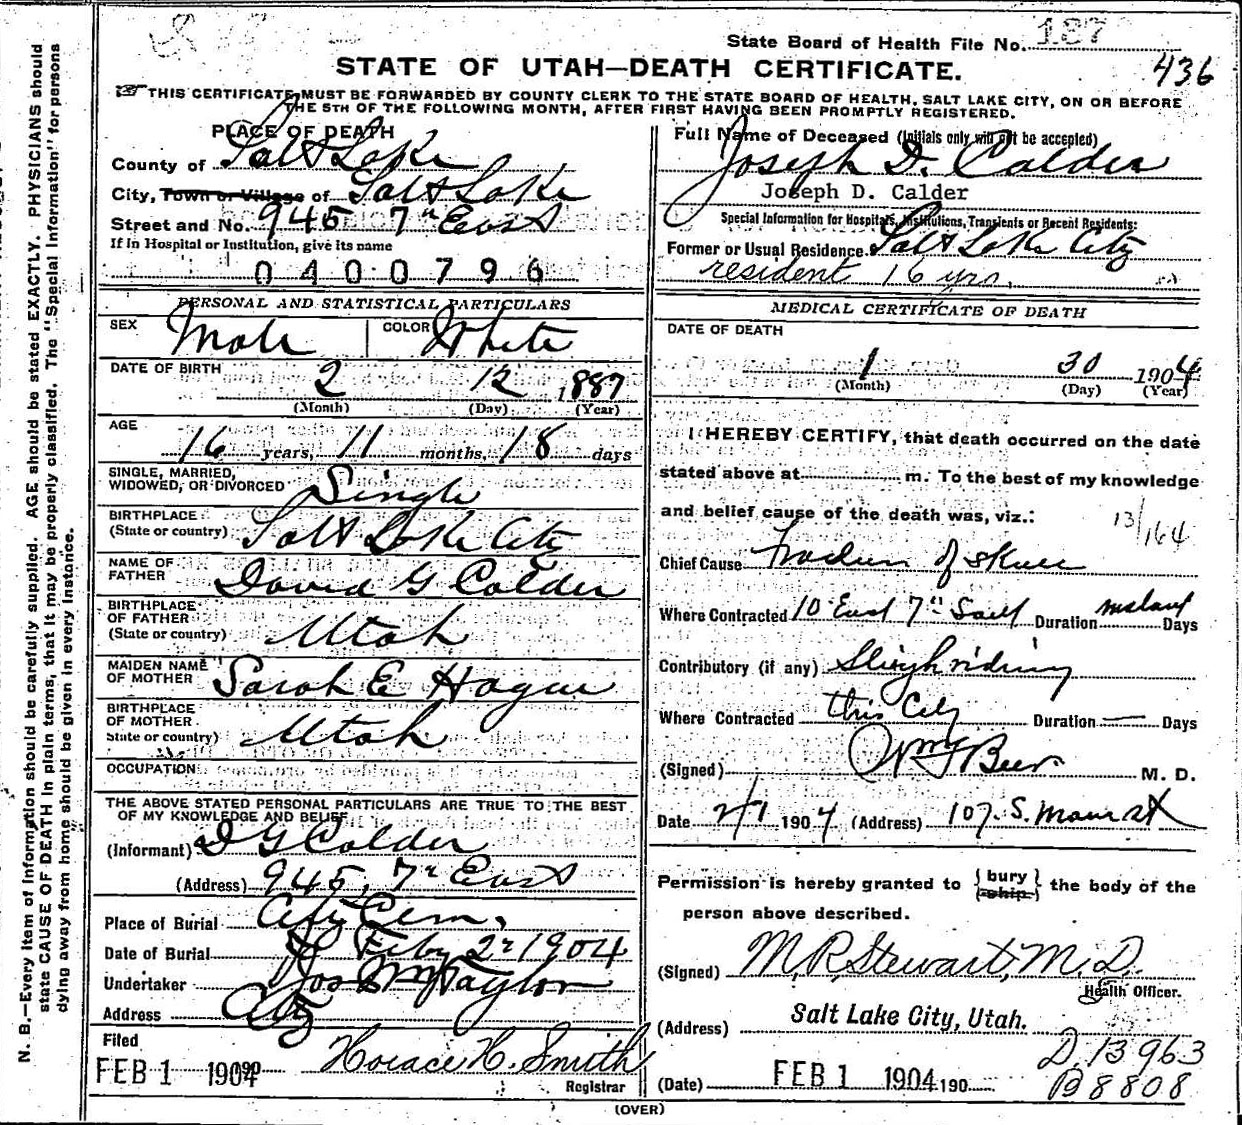 State Board of Health File No. 187
436
STATE OF UTAH—DEATH CERTIFICATE.
THIS CERTIFICATE MUST BE FORWARDED BY COUNTY CLERK TO THE STATE BOARD OF HEALTH, SALT LAKE CITY, ON OR BEFORE
THE 5TH OF THE FOLLOWING MONTH, AFTER FIRST HAVING BEEN PROMPTLY REGISTERED.
PLACE OF DEATH
County of Salt Lake
City, Town or Village of Salt Lake
Street and No. 945 7th East
If in Hospital or Institution, give its name
0400796
PERSONAL AND STATISTICAL PARTICULARS
SEX Male COLOR White
DATE OF BIRTH 2 12 1887
(Month) (Day) (Year)
AGE
16 years, 11 months, 18 days
SINGLE, MARRIED,
WIDOWED, OR DIVORCED Single
BIRTHPLACE
(State or country) Salt Lake City
NAME OF
FATHER David G Calder
BIRTHPLACE
OF FATHER
(State or country) Utah
MAIDEN NAME
OF MOTHER Sarah E Hague
BIRTHPLACE
OF MOTHER
State or country) Utah
OCCUPATION
THE ABOVE STATED PERSONAL PARTICULARS ARE TRUE TO THE BEST
OF MY KNOWLEDGE AND BELIEF
(Informant) D G Calder
(Address) 945, 7th East
Place of Burial City Cem,
Date of Burial Feby 2nd 1904
Undertaker Jos Wm Taylor
Address City
Filed
FEB 1 1904 Horace H. Smith
Registrar
Full Name of Deceased (Initials only will not be accepted)
Joseph D. Calder
Joseph D. Calder
Special Information for Hospitals, Institutions, Transients or Recent Residents:
Former or Usual Residence Salt Lake City
resident 16 yrs.
MEDICAL CERTIFICATE OF DEATH
DATE OF DEATH
1 30 1904
(Month) (Day) (Year)
I HEREBY CERTIFY, that death occurred on the date
stated above at m. To the best of my knowledge
and belief cause of the death was, viz.:
13/164
Chief Cause Fracture of Skull
Where Contracted 10 East 7th South Duration instant Days
Contributory (if any) Sleighriding
Where Contracted this City Duration — Days
(Signed) Wm F Beer M. D.
Date 2/1 1904 (Address) 107. S. Main st
Permission is hereby granted to { bury ship } the body of the
person above described.
(Signed) M. R. Stewart, M. D.
Health Officer.
(Address) Salt Lake City, Utah.
D 13963
(Date) FEB 1 1904 190
B 8808
(OVER)
N. B.—Every item of information should be carefully supplied. AGE should be stated EXACTLY. PHYSICIANS should
state CAUSE OF DEATH in plain terms, that it may be properly classified. The "Special Information" for persons
dying away from home should be given in every instance.